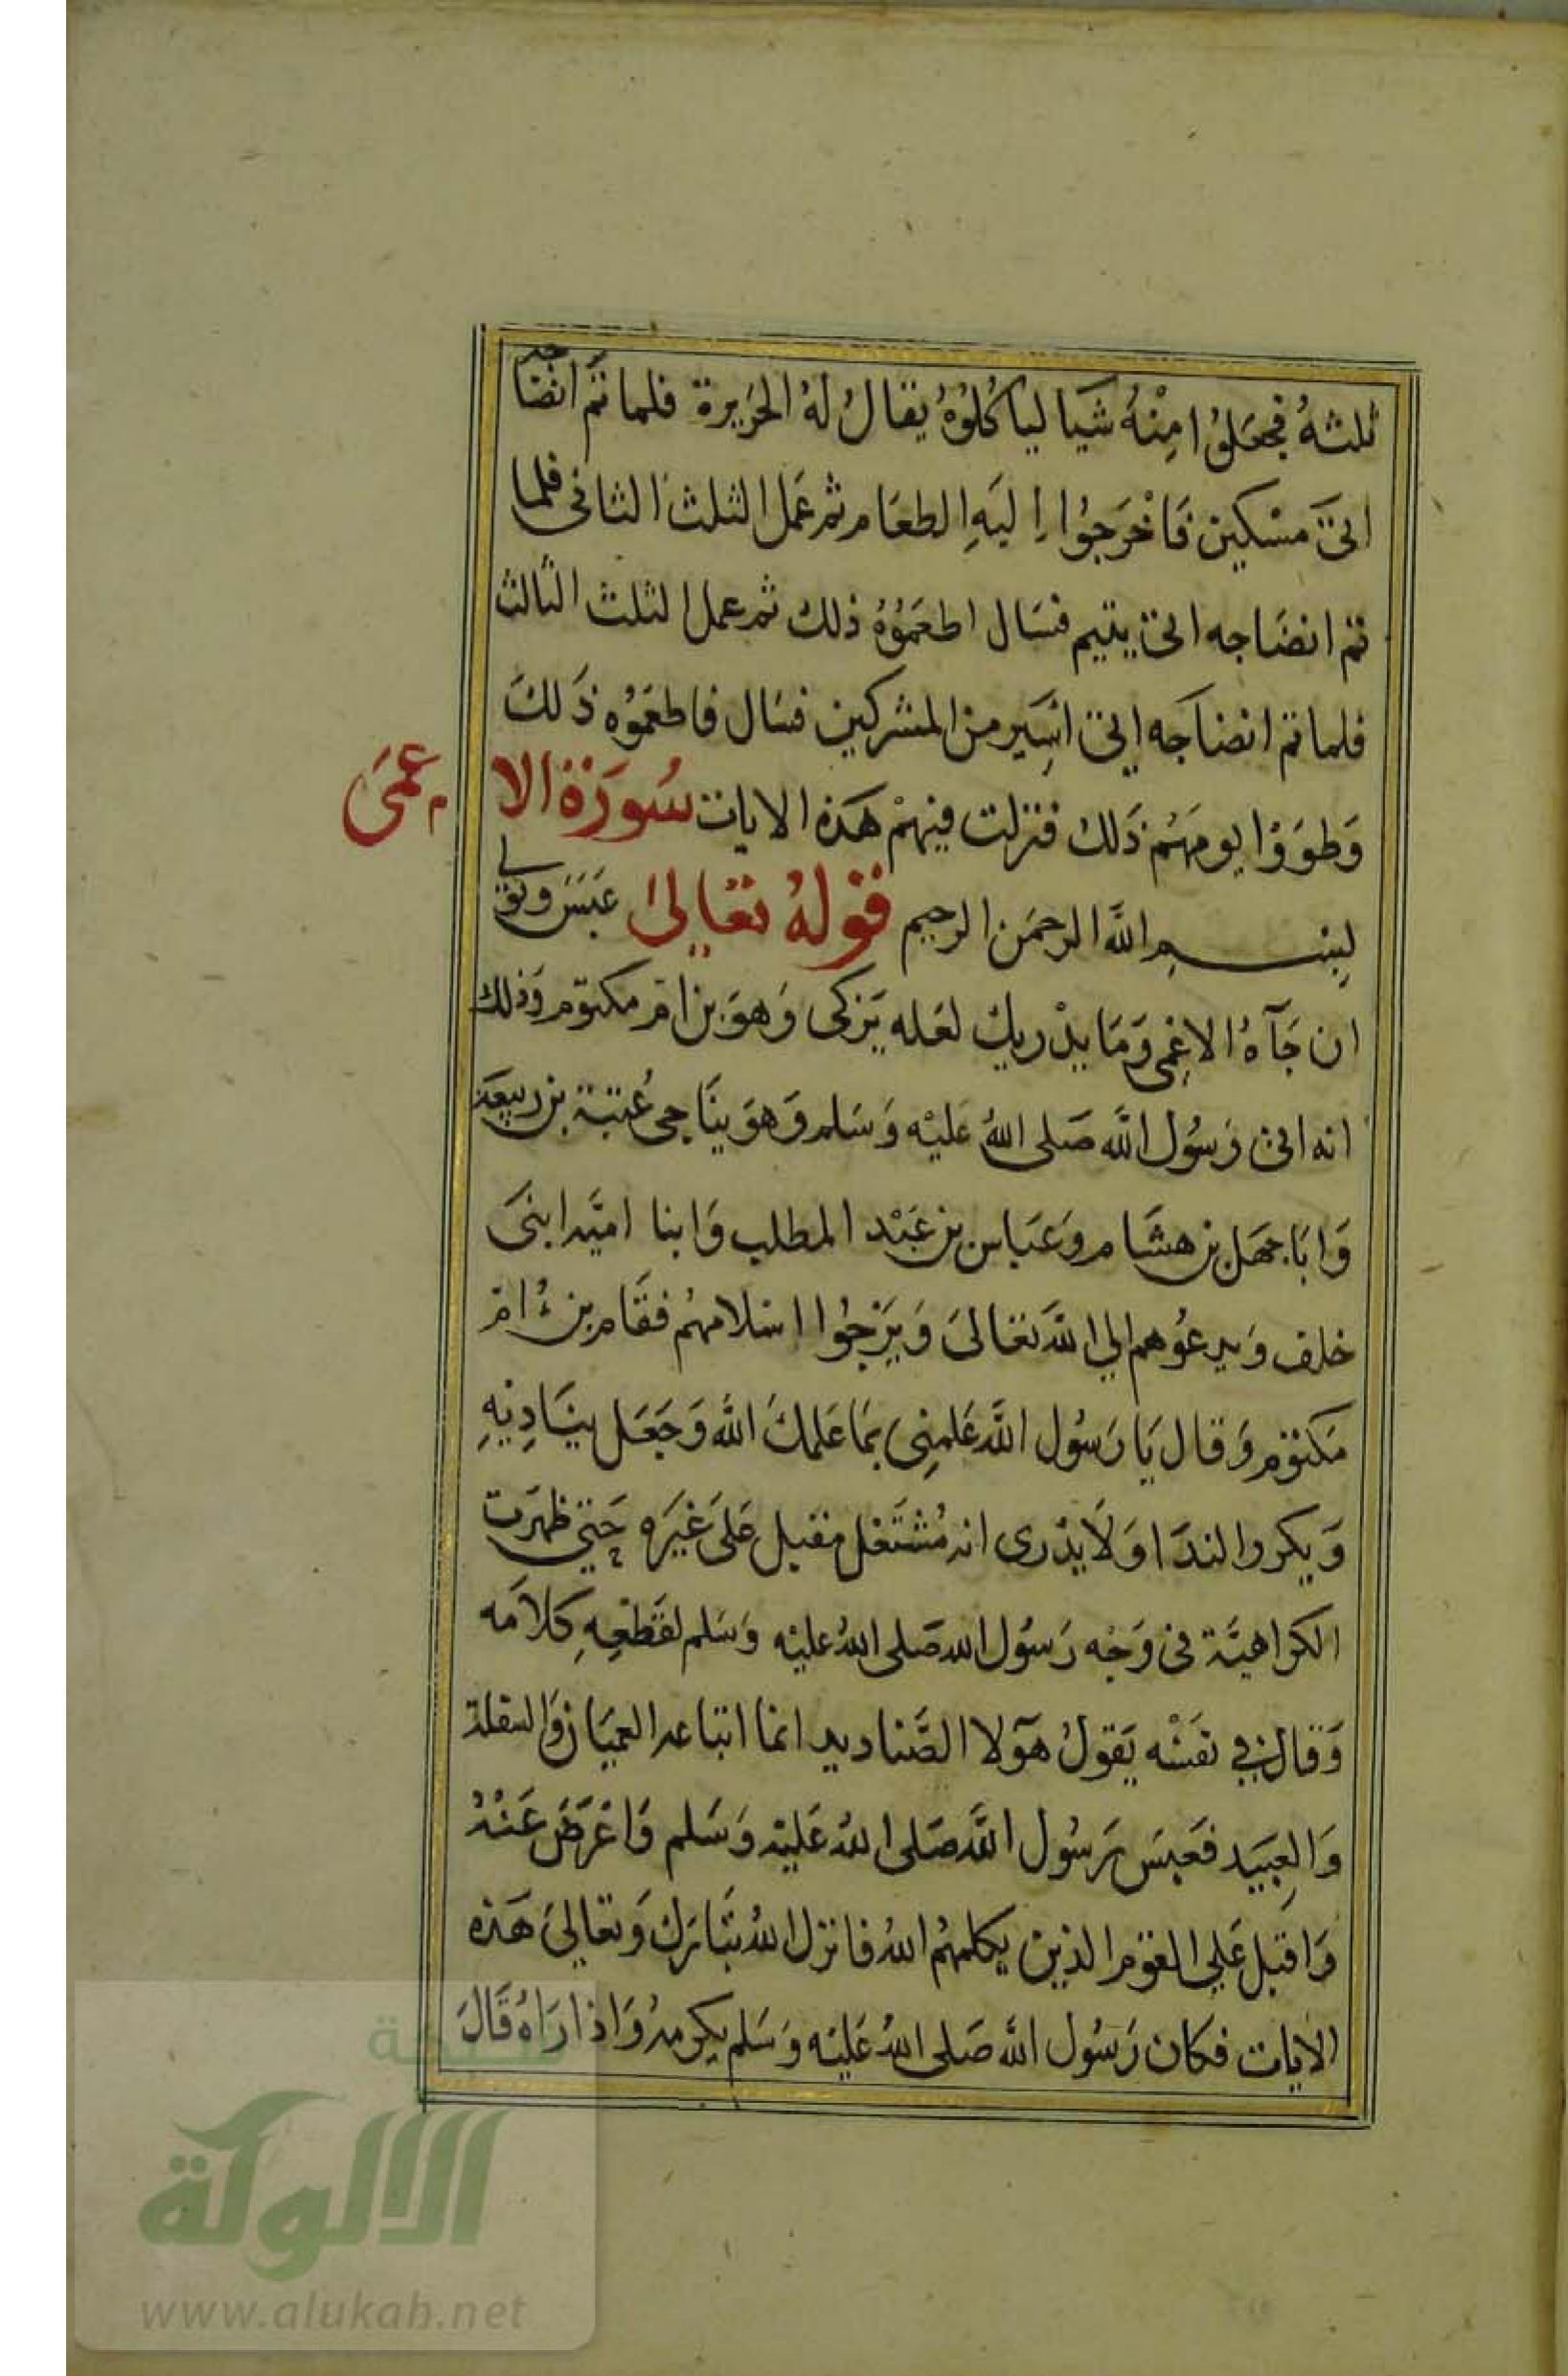 ثلثه فجعلوا منْهُ شَيا لياكُلوُهُ يقالُ لهُ الحَزيرة فلما تمَّ انضاجه
اتىَ مسْكين فَاخْرَجوُا اِليَهِ الطعَام ثم عَمل الثلث الثانى فلما
تم انضَاجه اتى يتيم فسَال اطعَموُهُ ذلك ثم عمل الثلث الثالث
فلما تم انضاجَه اتى اسَير من المشركين فسَال فاطعَموُه ذَلكَ
وَطوَوْا يومَهُم ذَلك فنزلت فيهمْ هَذه الايات سُورَة الاعمَى
بسم اللَّه الرحمَن الرحيم قولهُ تعَالىَ عَبَسَ وتولى
ان جَآهُ الاعْمى وَمَا يدْريك لعَله يَزكى وَهوَ بن ام مكتوم وَذلك
انه اتى رَسوُل اللَّه صَلى اللهُ عَليْه وَسَلم وَهوَ ينَاجى عُتبة بن ربيعَة
وَابَا جهَل بن هشَام وَعبَاس بن عَبْد المطلب وَابنا اميَّه ابنىَ
خلف وَيدعوُهم الي اللَّه تعَالىَ وَيَرْجوُا اسْلامهُم فقَام بن اُم
مَكتوم وَقال يَا رَسوُل اللَّه عَلمِنِى بمَا عَلمكَ اللَّه وَجَعَل ينَادِيْهِ
وَيكرر الندَا وَلاَ يدْرى انه مُشتَغل مقبل عَلىَ غيَرَه حَتىَّ ظهَرَت
الكراهيَّة فى وَجْه رَسوُل الله صَلى اللهُ عليْه وَسَلم لقَطْعِهِ كلاَمَه
وَقال في نفسْه يَقولُ هَوَلا الصَّناديد انما اتباعه العميَان وَالسفلة
وَالعبيَد فعَبسَ رَسوُل اللَّه صَلى اللهُ عَليْه وَسَلم وَاعْرَضَ عَنْهُ
وَاقبل عَلي القوْم الذين يكلمهُم اللهُ فانزل اللهُ تبَارَك وَتعَالىَ هَذه
الايات فكان رَسوُل اللَّه صَلى اللهُ عَليْه وَسَلم يكرمهُ وَاذا رَاهُ قَالَ
شبكة
الألوكة
www.alukah.net